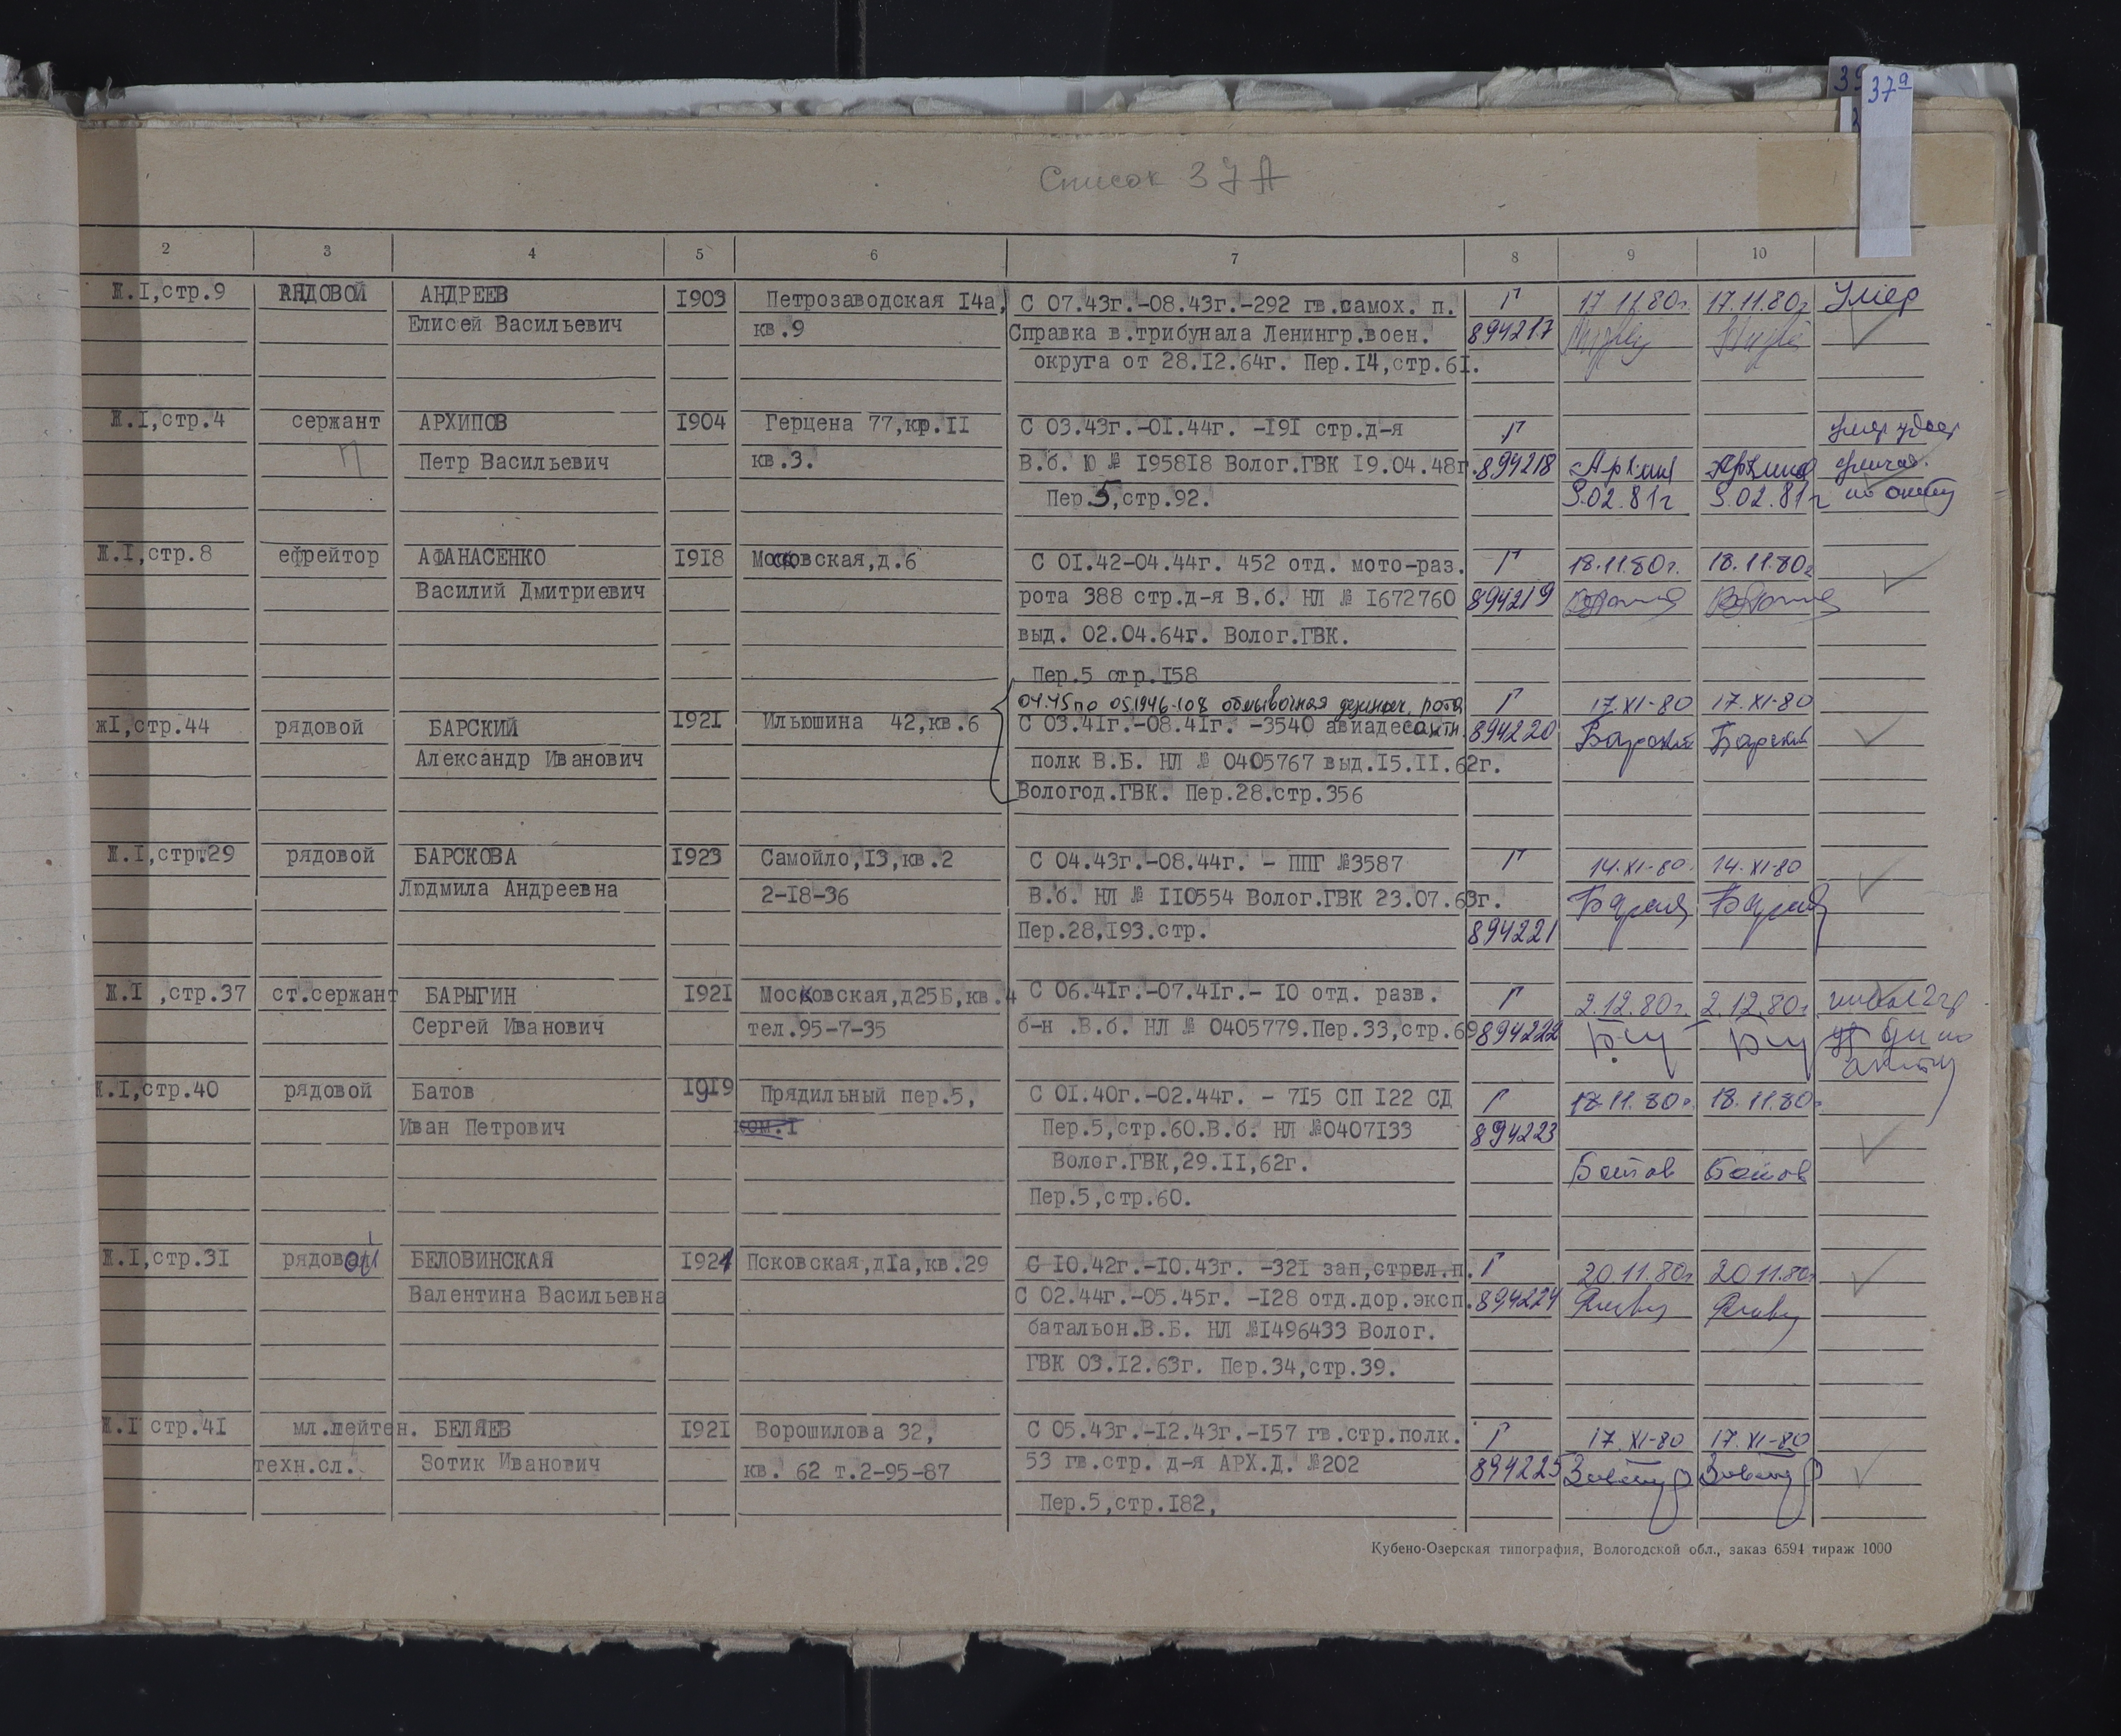 37а
Список 37А
2 3 4 5 6 7 8 9 10
Ж.I,стр.9 РЯДОВОЙ АНДРЕЕВ I903 Петрозаводская I4а, С 07.43г.-08.43г.-292 гв.самох. п. Г 17.11.80г. 17.11.80г Умер
Елисей Васильевич кв.9 Справка в.трибунала Ленингр.воен. 894217
округа от 28.I2.64г. Пер.I4,стр.6I.
Ж.I,стр.4 сержант АРХИПОВ I904 Герцена 77,кр.II С 03.43г.-0I.44г. -I9I стр.д-я Г умер удост
П Петр Васильевич кв.3. В.б. Ю № I958I8 Волог.ГВК I9.04.48г. 894218 Архип Архипов
Пер.5,стр.92. 9.02.81г 9.02.81г по акту
Ж.I,стр.8 ефрейтор АФАНАСЕНКО I9I8 Московская,д.6 С 0I.42-04.44г. 452 отд. мото-раз. Г 18.11.80г. 18.11.80г
Василий Дмитриевич рота 388 стр.д-я В.б. НЛ № I672760 894219
выд. 02.04.64г. Волог.ГВК.
Пер.5 стр.I58
04.45 по 05.1946-108 обмывочная дезинф. рота Г 17.XI-80 17.XI-80
жI,стр.44 рядовой БАРСКИЙ I92I Ильюшина 42,кв.6 С 03.4Iг.-08.4Iг. -3540 авиадесантн. 894220 Барский Барский
Александр Иванович полк В.Б. НЛ № 0405767 выд.I5.II.62г.
Вологод.ГВК. Пер.28.стр.356
Ж.I,стр.29 рядовой БАРСКОВА I923 Самойло,I3,кв.2 С 04.43г.-08.44г. - ППГ №3587 Г 14.XI-80. 14.XI-80
Людмила Андреевна 2-I8-36 В.б. НЛ № II0554 Волог.ГВК 23.07.63г.
Пер.28,I93.стр. 894221
Ж.I ,стр.37 ст.сержант БАРЫГИН I92I Московская,д25Б,кв.4 С 06.4Iг.-07.4Iг.- I0 отд. разв. Г 2.12.80г. 2.12.80г
Сергей Иванович тел.95-7-35 б-н .В.б. НЛ № 0405779.Пер.33,стр.69 894222
акту
Ж.I,стр.40 рядовой Батов I9I9 Прядильный пер.5, С 0I.40г.-02.44г. - 7I5 СП I22 СД Г 18.11.80г. 18.11.80г
Иван Петрович ком.I Пер.5,стр.60.В.б. НЛ №0407I33 894223
Волог.ГВК,29.II,62г. Батов Батов
Пер.5,стр.60.
Ж.I,стр.3I рядовой БЕЛОВИНСКАЯ I924 Псковская,дIа,кв.29 С I0.42г.-I0.43г. -32I зап,стрел.п. Г 20.11.80г 20.11.80г
Валентина Васильевна С 02.44г.-05.45г. -I28 отд.дор.эксп. 894224
батальон.В.Б. НЛ №I496433 Волог.
ГВК 03.I2.63г. Пер.34,стр.39.
Ж.I стр.4I мл.лейтен. БЕЛЯЕВ I92I Ворошилова 32, С 05.43г.-I2.43г.-I57 гв.стр.полк. Г 17.XI-80 17.XI-80
техн.сл. Зотик Иванович кв. 62 т.2-95-87 53 гв.стр. д-я АРХ.Д. №202 894225
Пер.5,стр.I82,
Кубено-Озерская типография, Вологодской обл., заказ 6594 тираж 1000